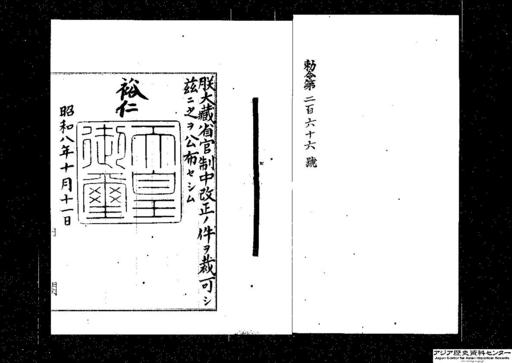 勅令第二百六十六號
朕大藏省官制中改正ノ件ヲ裁可シ
茲ニ之ヲ公布セシム
裕仁
天皇御璽
昭和八年十月十一日
アジア歴史資料センター
Japan Center for Asian Historical Records